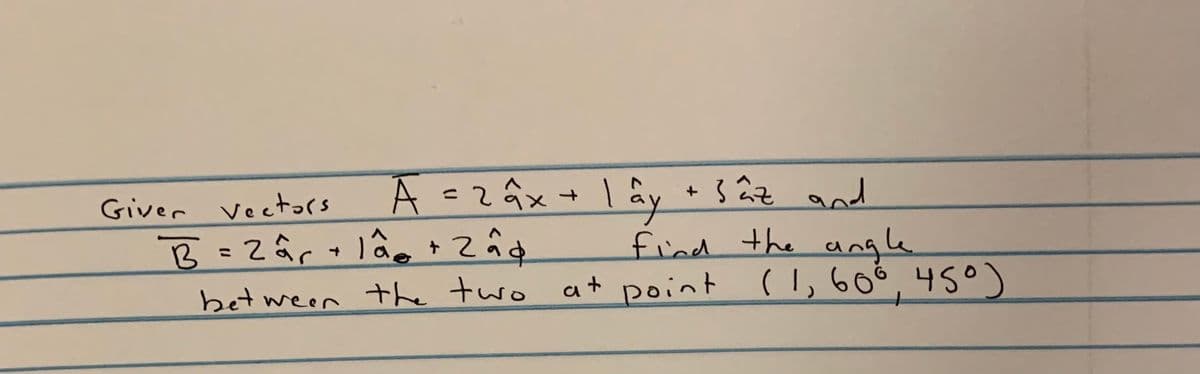 Given vectors A̅ = 2 âx + 1 ây + 3 âz and
B̅ = 2 âr + 1 âθ + 2 âφ find the angle
between the two at point (1, 60°, 45°)